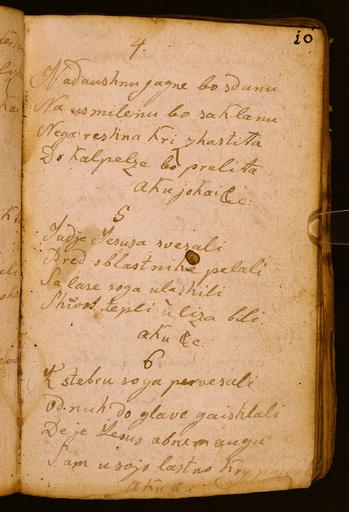 10
4.
Nadaushnu jagne bo sdanu
Na usmilenu bo saklanu
Nega reshna kri zhastitta
Do kalpelze bo prelitta
aku jokai &c:
5
Judje Jesusa svesali
Pred oblastnike pelali
Sa lase soga ulazhili
Shivot tepli u liza bili
aku &c:
6
K stebru soga pervesali
Od nuh do glave gaishlali
De je Jesus abnem augu
Sam usojo lastno kry
aku &c